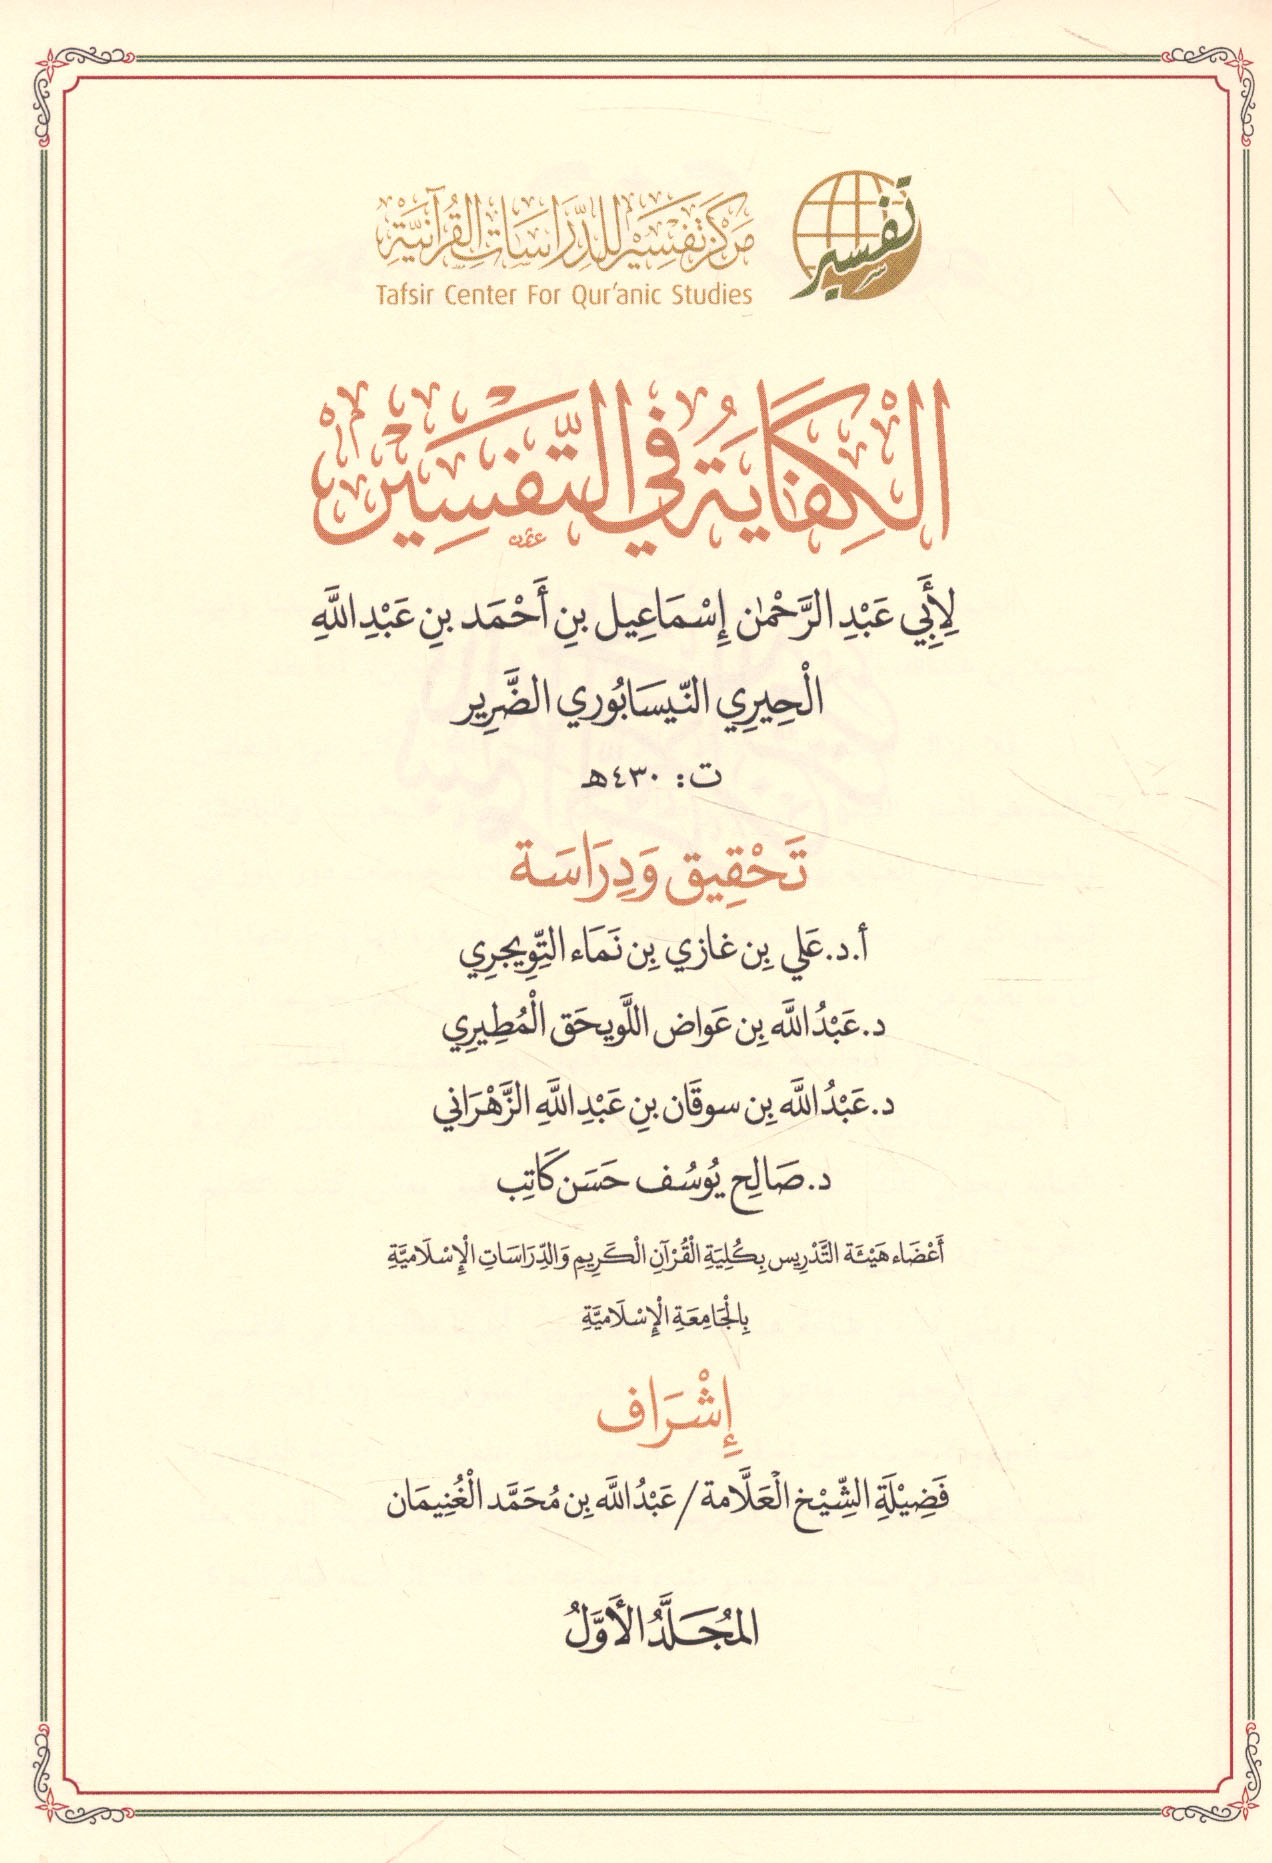 تفسير
مَرْكَز تَفْسِيْر لِلدِّرَاسَاتِ القُرْآنِيَّةِ
Tafsir Center For Qur'anic Studies
الْكِفَايَةُ فِي التَّفْسِيْرِ
لِأَبِي عَبْدِ الرَّحْمٰن إِسْمَاعِيل بنِ أَحْمَد بنِ عَبْدِ اللَّهِ
الْحِيرِي النَّيسَابُوري الضَّرِير
ت: ٤٣٠هـ
تَحْقِيق وَدِرَاسَة
أ.د.عَلي بِن غازي بِن نَمَاء التِّويجرِي
د.عَبْدُ اللَّه بِن عَواض اللَّويحَق الْمُطِيرِي
د.عَبْدُ اللَّه بِن سوقَان بنِ عَبْدِ اللَّهِ الزَّهْرَاني
د.صَالِح يُوسُف حَسَن كَاتِب
أَعْضَاء هَيْئَة التَّدْرِيس بِكُلِيَةِ الْقُرْآنِ الْكَرِيمِ وَالدِّرَاسَاتِ الْإِسْلَاميَّةِ
بِالْجَامِعَةِ الْإِسْلَاميَّةِ
إِشْرَاف
فَضِيْلَةِ الشِّيْخ الْعَلَّامة/ عَبْدُ اللَّه بِن مُحَمَّد الْغُنِيمَان
المُجَلَّدُ الأَوَّلُ